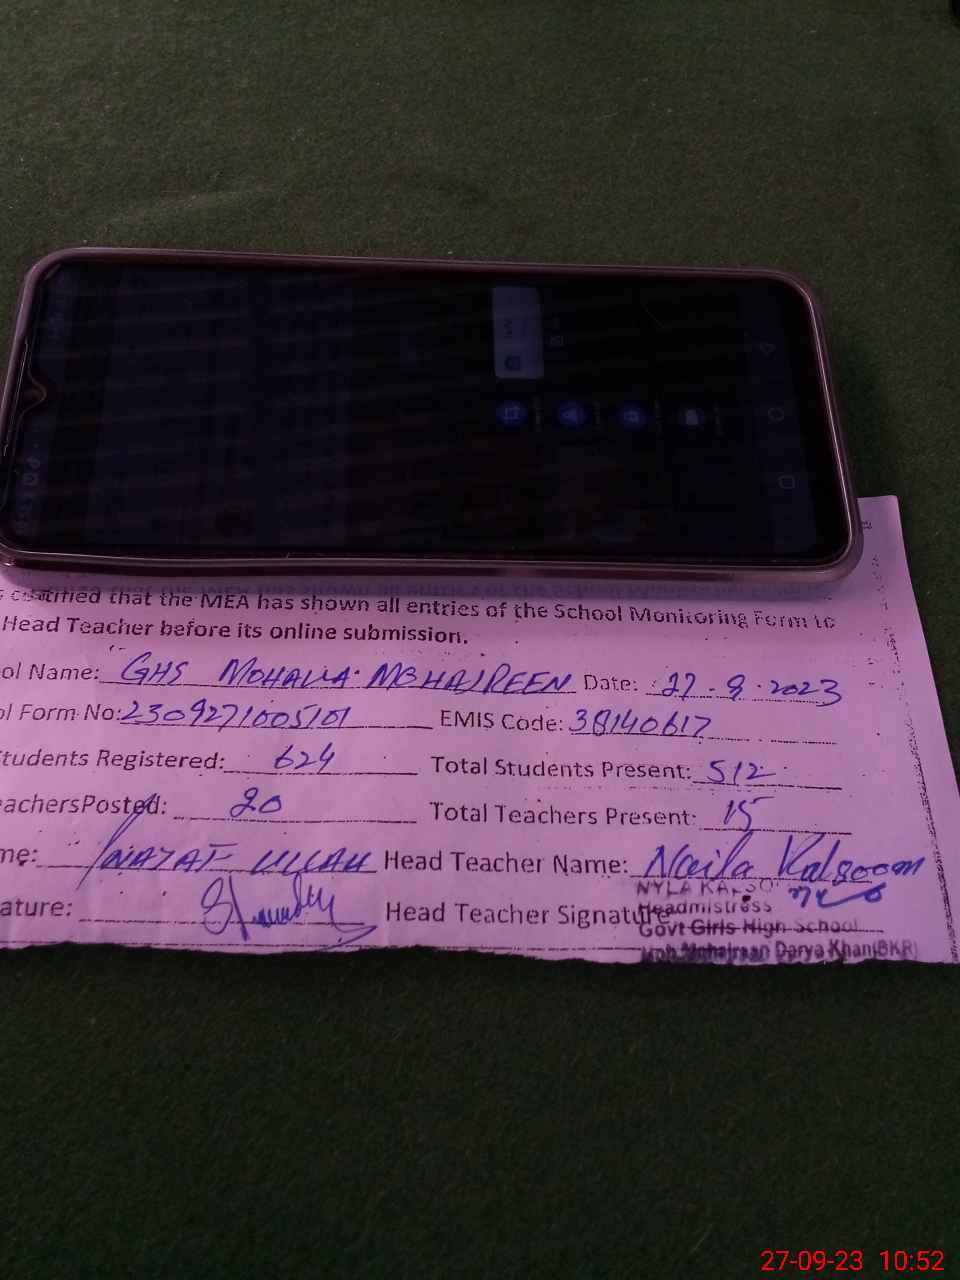 certified that the MEA has shown all entries of the School Monitoring Form to
Head Teacher before its online submission.
ol Name: GHS MOHALLA MOHAJREEN Date: 27-9-2023
ol Form No: 2309271005101 EMIS Code: 38140617
tudents Registered: 624 Total Students Present: 512
eachersPosted: 20 Total Teachers Present: 15
me: INAYAT ULLAH Head Teacher Name: Naila Kalsoom
ature: Head Teacher Signature
NYLA KALSO
Headmistress
Govt Girls High School
Moh Mohajreen Darya Khan(BKR)
27-09-23 10:52